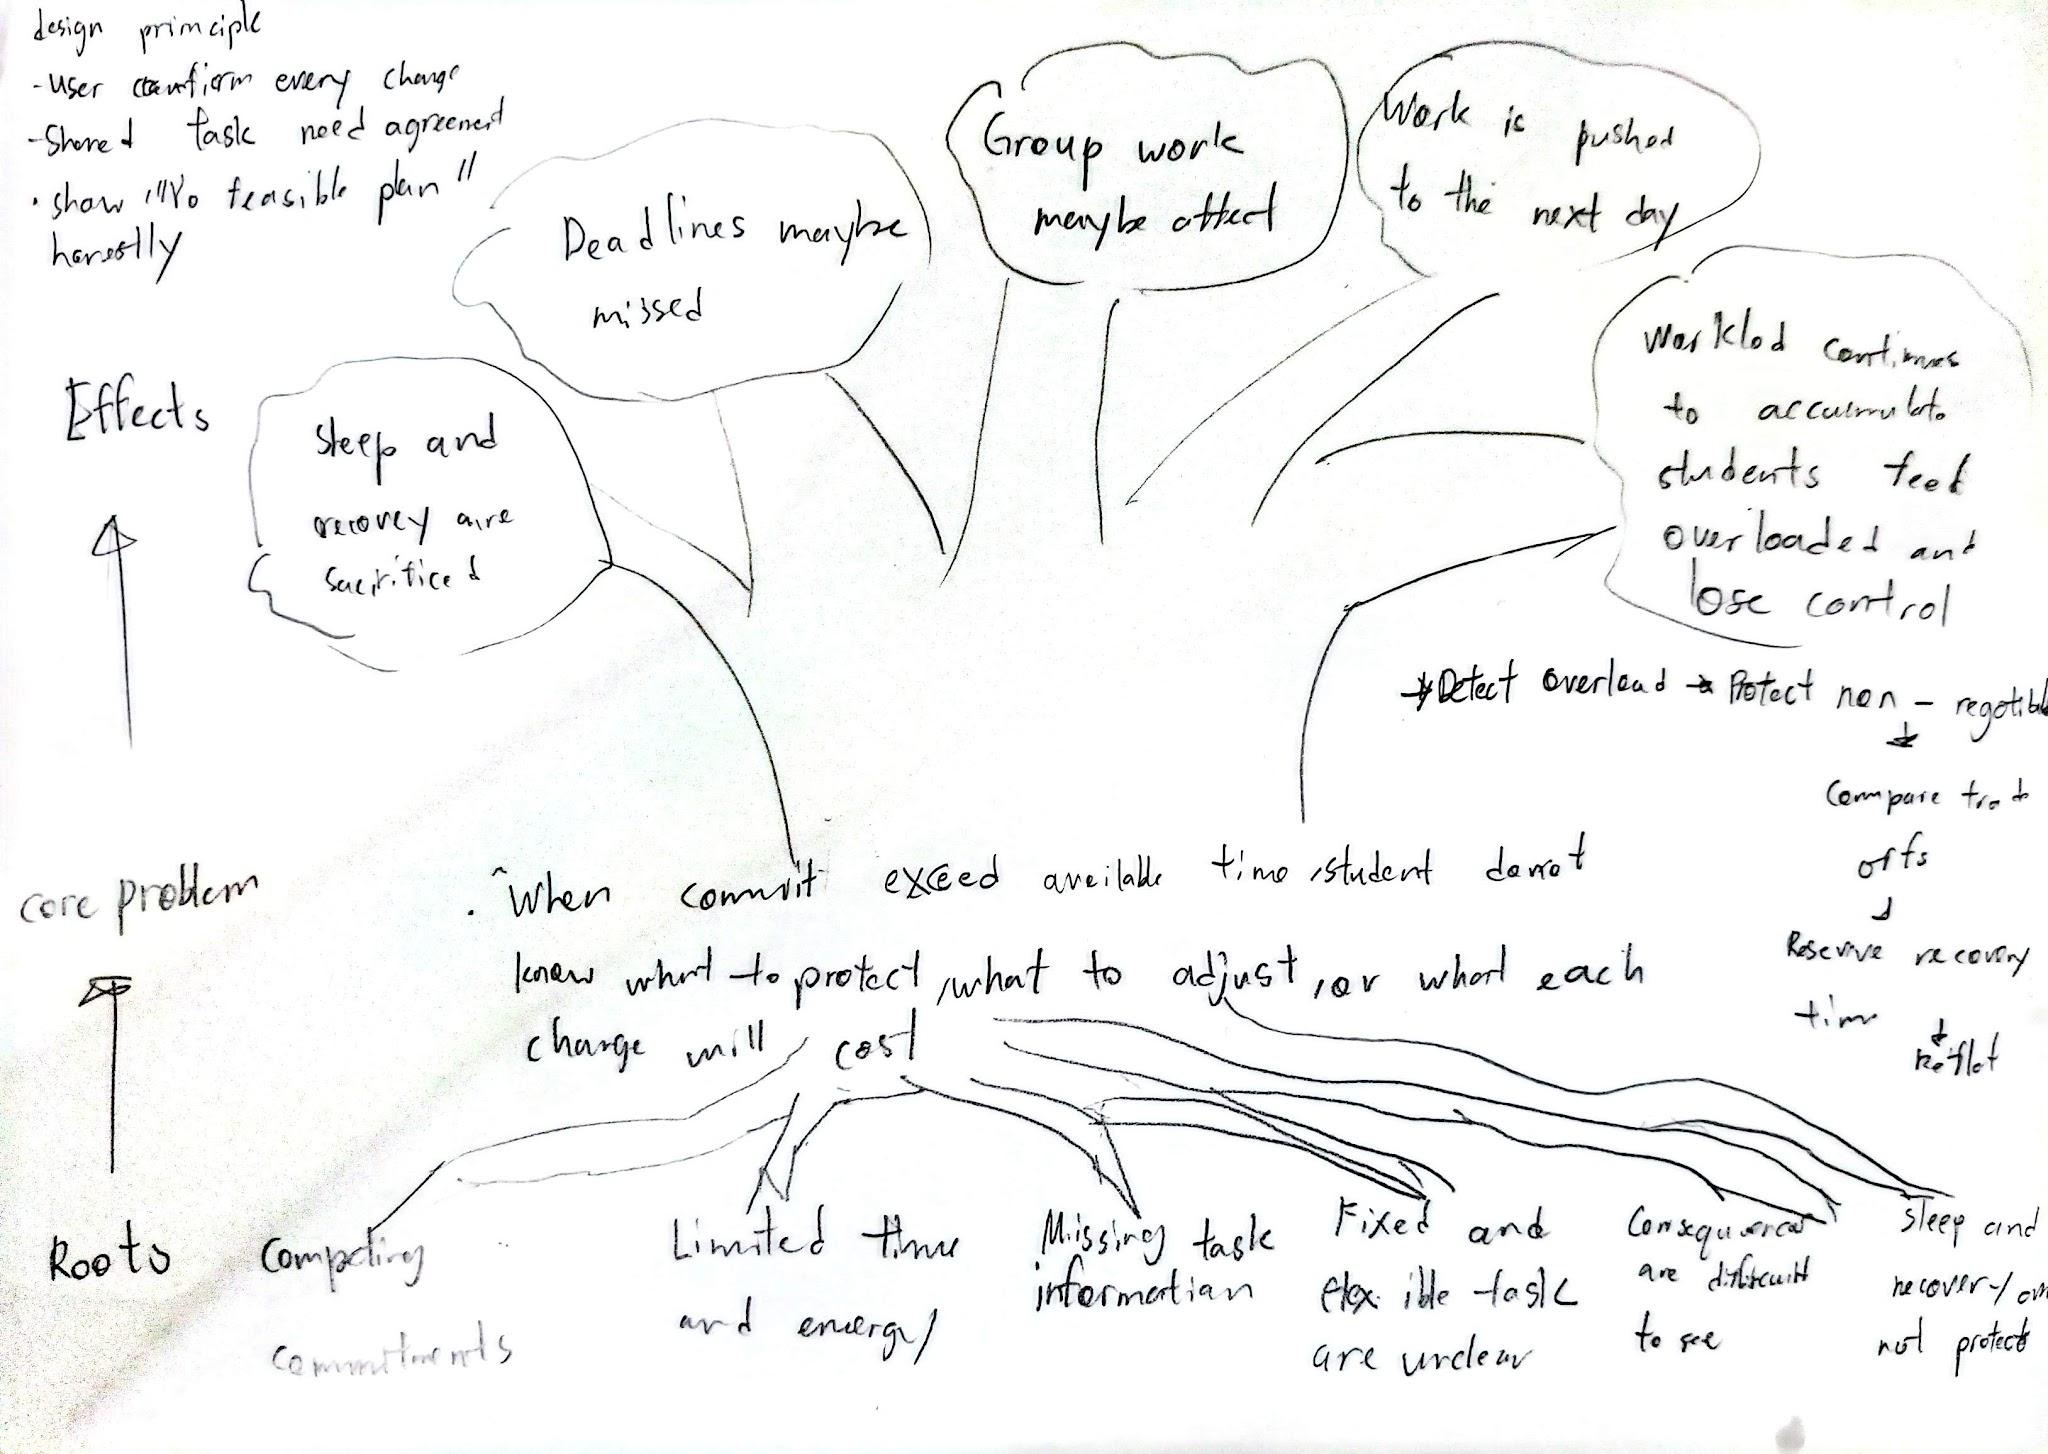 design principle
- User confirm every change
- Shared task need agreement
• show "No feasible plan"
honestly
Effects
Sleep and
recovey are
sacrificed
Deadlines maybe
missed
Group work
maybe affect
Work is pushed
to the next day
Workload continues
to accumulate
students feel
overloaded and
lose control
→ Detect overload → Protect non - negotible
Compare trade
offs
Reserve recovery
time
Reflet
core problem
"When commit exceed available time, student donot
know what to protect, what to adjust, or what each
change will cost
Roots
Competing
commitments
Limited time
and energy
Missing task
information
Fixed and
flexible task
are unclear
Consequences
are difficult
to see
Sleep and
recovery are
not protect